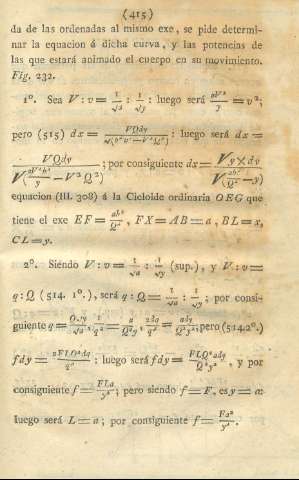 (415)
da de las ordenadas al mismo exe, se pide determi-
nar la equacion á dicha curva, y las potencias de
las que estará animado el cuerpo en su movimiento.
Fig. 232.
1°. Sea V : v = 1/√a : 1/√y : luego será aV²/y = v²;
pero (515) dx = VQdy/√(b²v² − V²Q²) : luego será dx =
VQdy/√(aV²b²/y − V²Q²); por consiguiente dx = √y × dy/√(ab²/Q² − y)
equacion (III. 308) á la Cicloide ordinaria OEG que
tiene el exe EF = ab²/Q², FX = AB = a, BL = x,
CL = y.
2°. Siendo V : v = 1/√a : 1/√y (sup.), y V : v =
q : Q (514. 1°.), será q : Q = 1/√a : 1/√y; por consi-
guiente q = Q√y/√a, 1/q² = a/Q²y, 2dq/q³ = ady/Q²y²; pero (514.2°.)
fdy = 2FLQ²dq/q³ : luego será fdy = FLQ²ady/Q²y², y por
consiguiente f = FLa/y²; pero siendo f = F, es y = a:
luego será L = a; por consiguiente f = Fa²/y².